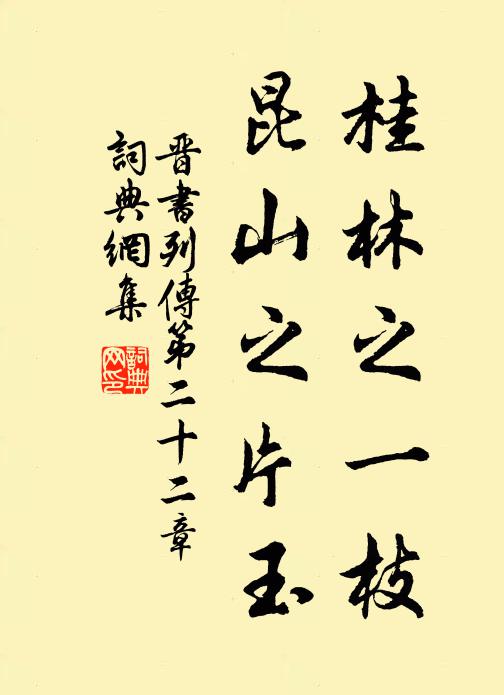 桂林之一枝
昆山之片玉
晉書列傳第二十二章
詞典網集
詞典网印